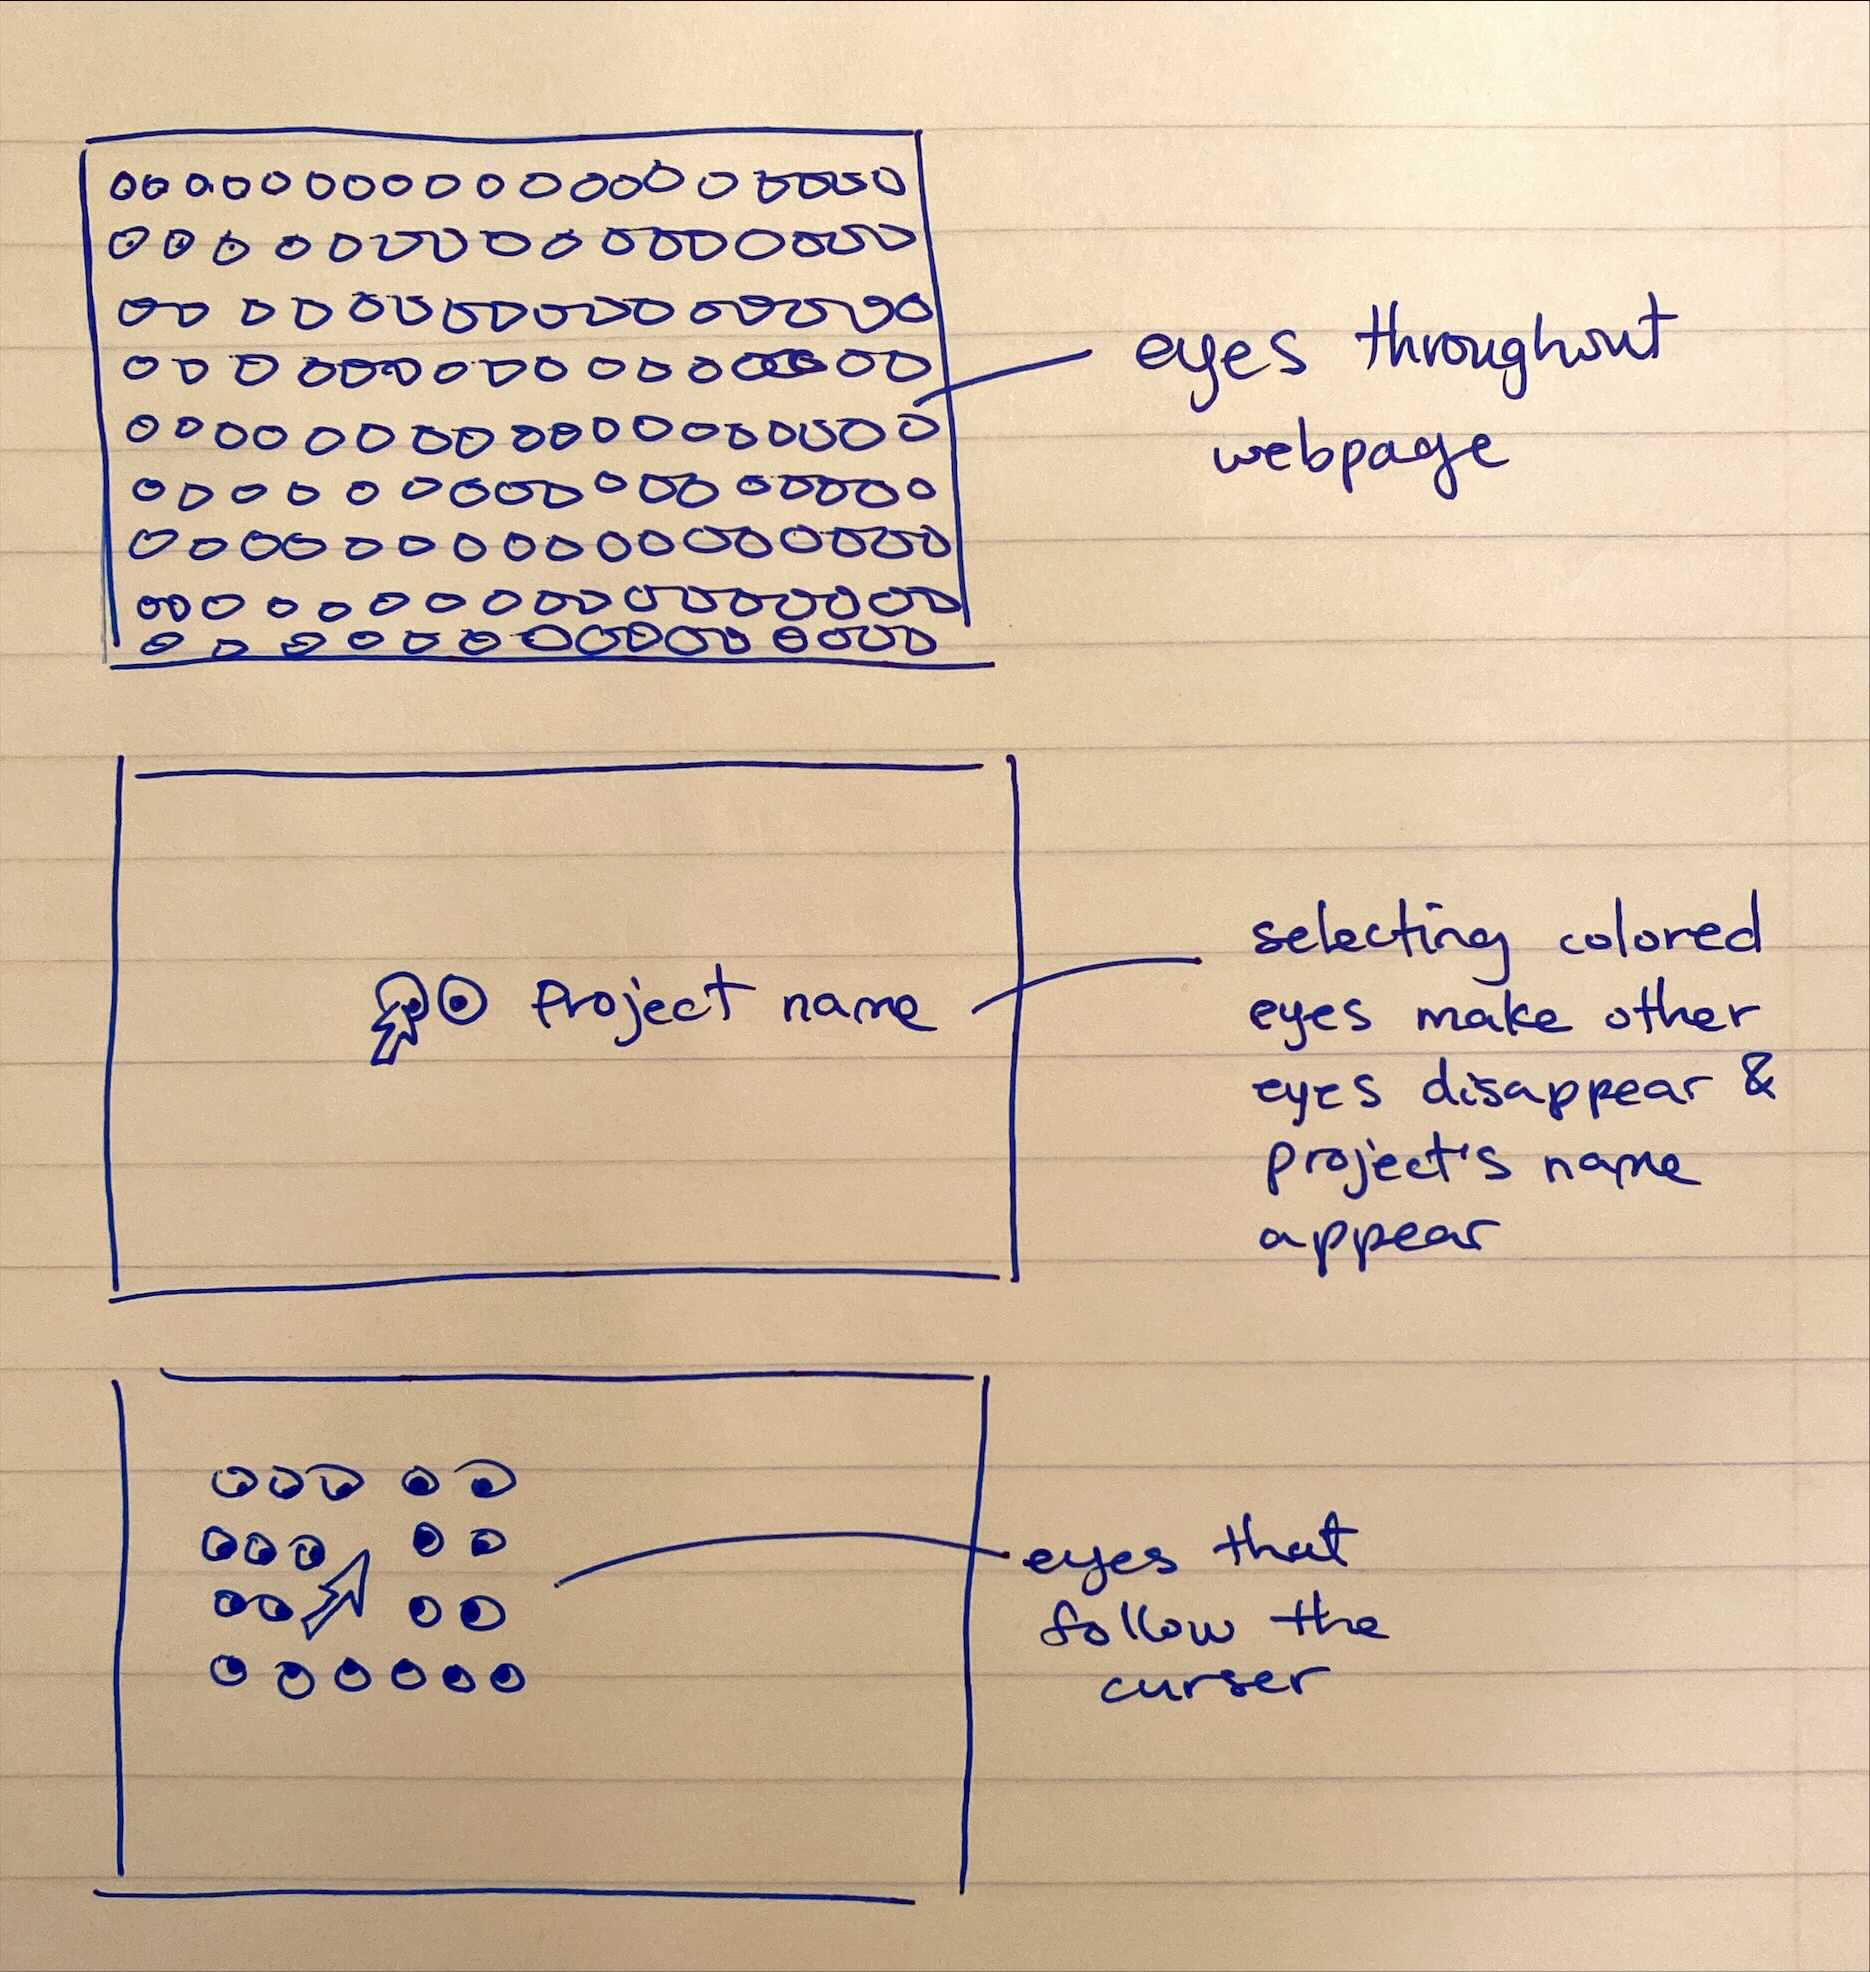 eyes throughout
webpage
Project name
selecting colored
eyes make other
eyes disappear &
project's name
appear
eyes that
follow the
curser